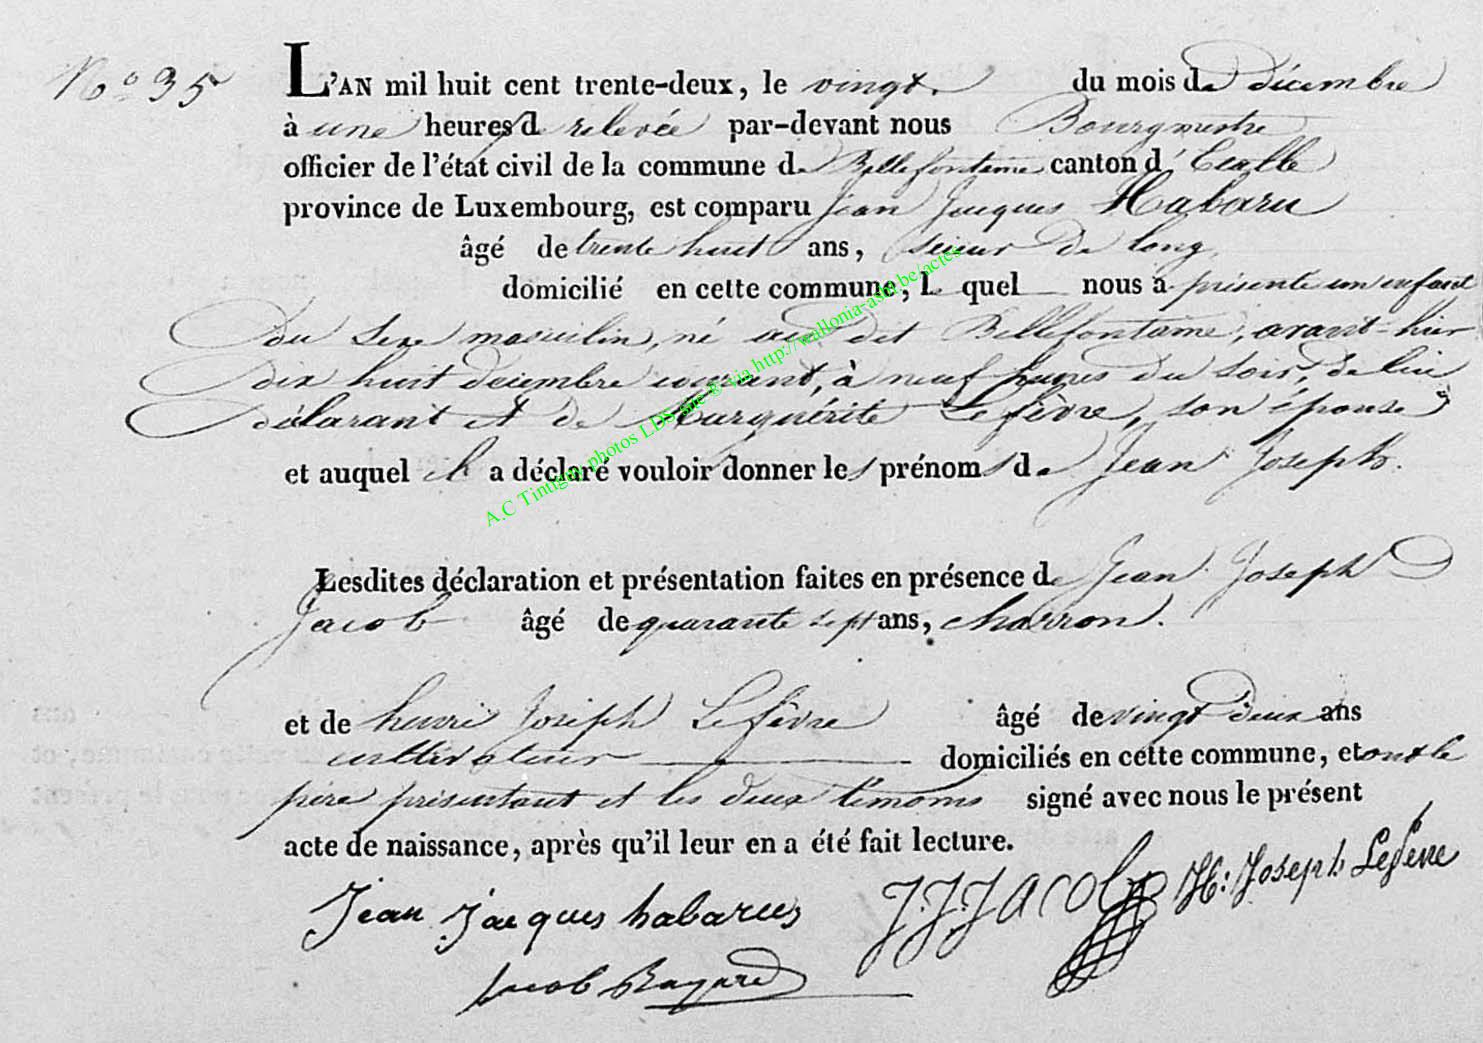 N.º 35
L'AN mil huit cent trente-deux, le vingt du mois de décembre
à une heures de relevée par-devant nous Bourgmestre
officier de l'état civil de la commune de Bellefontaine canton d'Etalle
province de Luxembourg, est comparu Jean Jacques Habaru
âgé de trente huit ans, scieur de long,
domicilié en cette commune, le quel nous a présenté un enfant
du sexe masculin, né au dit Bellefontaine, avant-hier
dix huit décembre courant, à neuf heures du soir, de lui
déclarant et de Marguérite Lefèvre, son épouse
et auquel il a déclaré vouloir donner les prénoms de Jean Joseph.
Lesdites déclaration et présentation faites en présence de Jean Joseph
Jacob âgé de quarante sept ans, charron.
et de henri Joseph Lefèvre âgé de vingt deux ans
cultivateur domiciliés en cette commune, et ont le
père présentant et les deux témoins signé avec nous le présent
acte de naissance, après qu'il leur en a été fait lecture.
Jean Jacques habarus J.J.JACOB H: Joseph Lefevre
Jacob
A.C Tintigny photos LDS via http://wallonia-asbl.be/actes